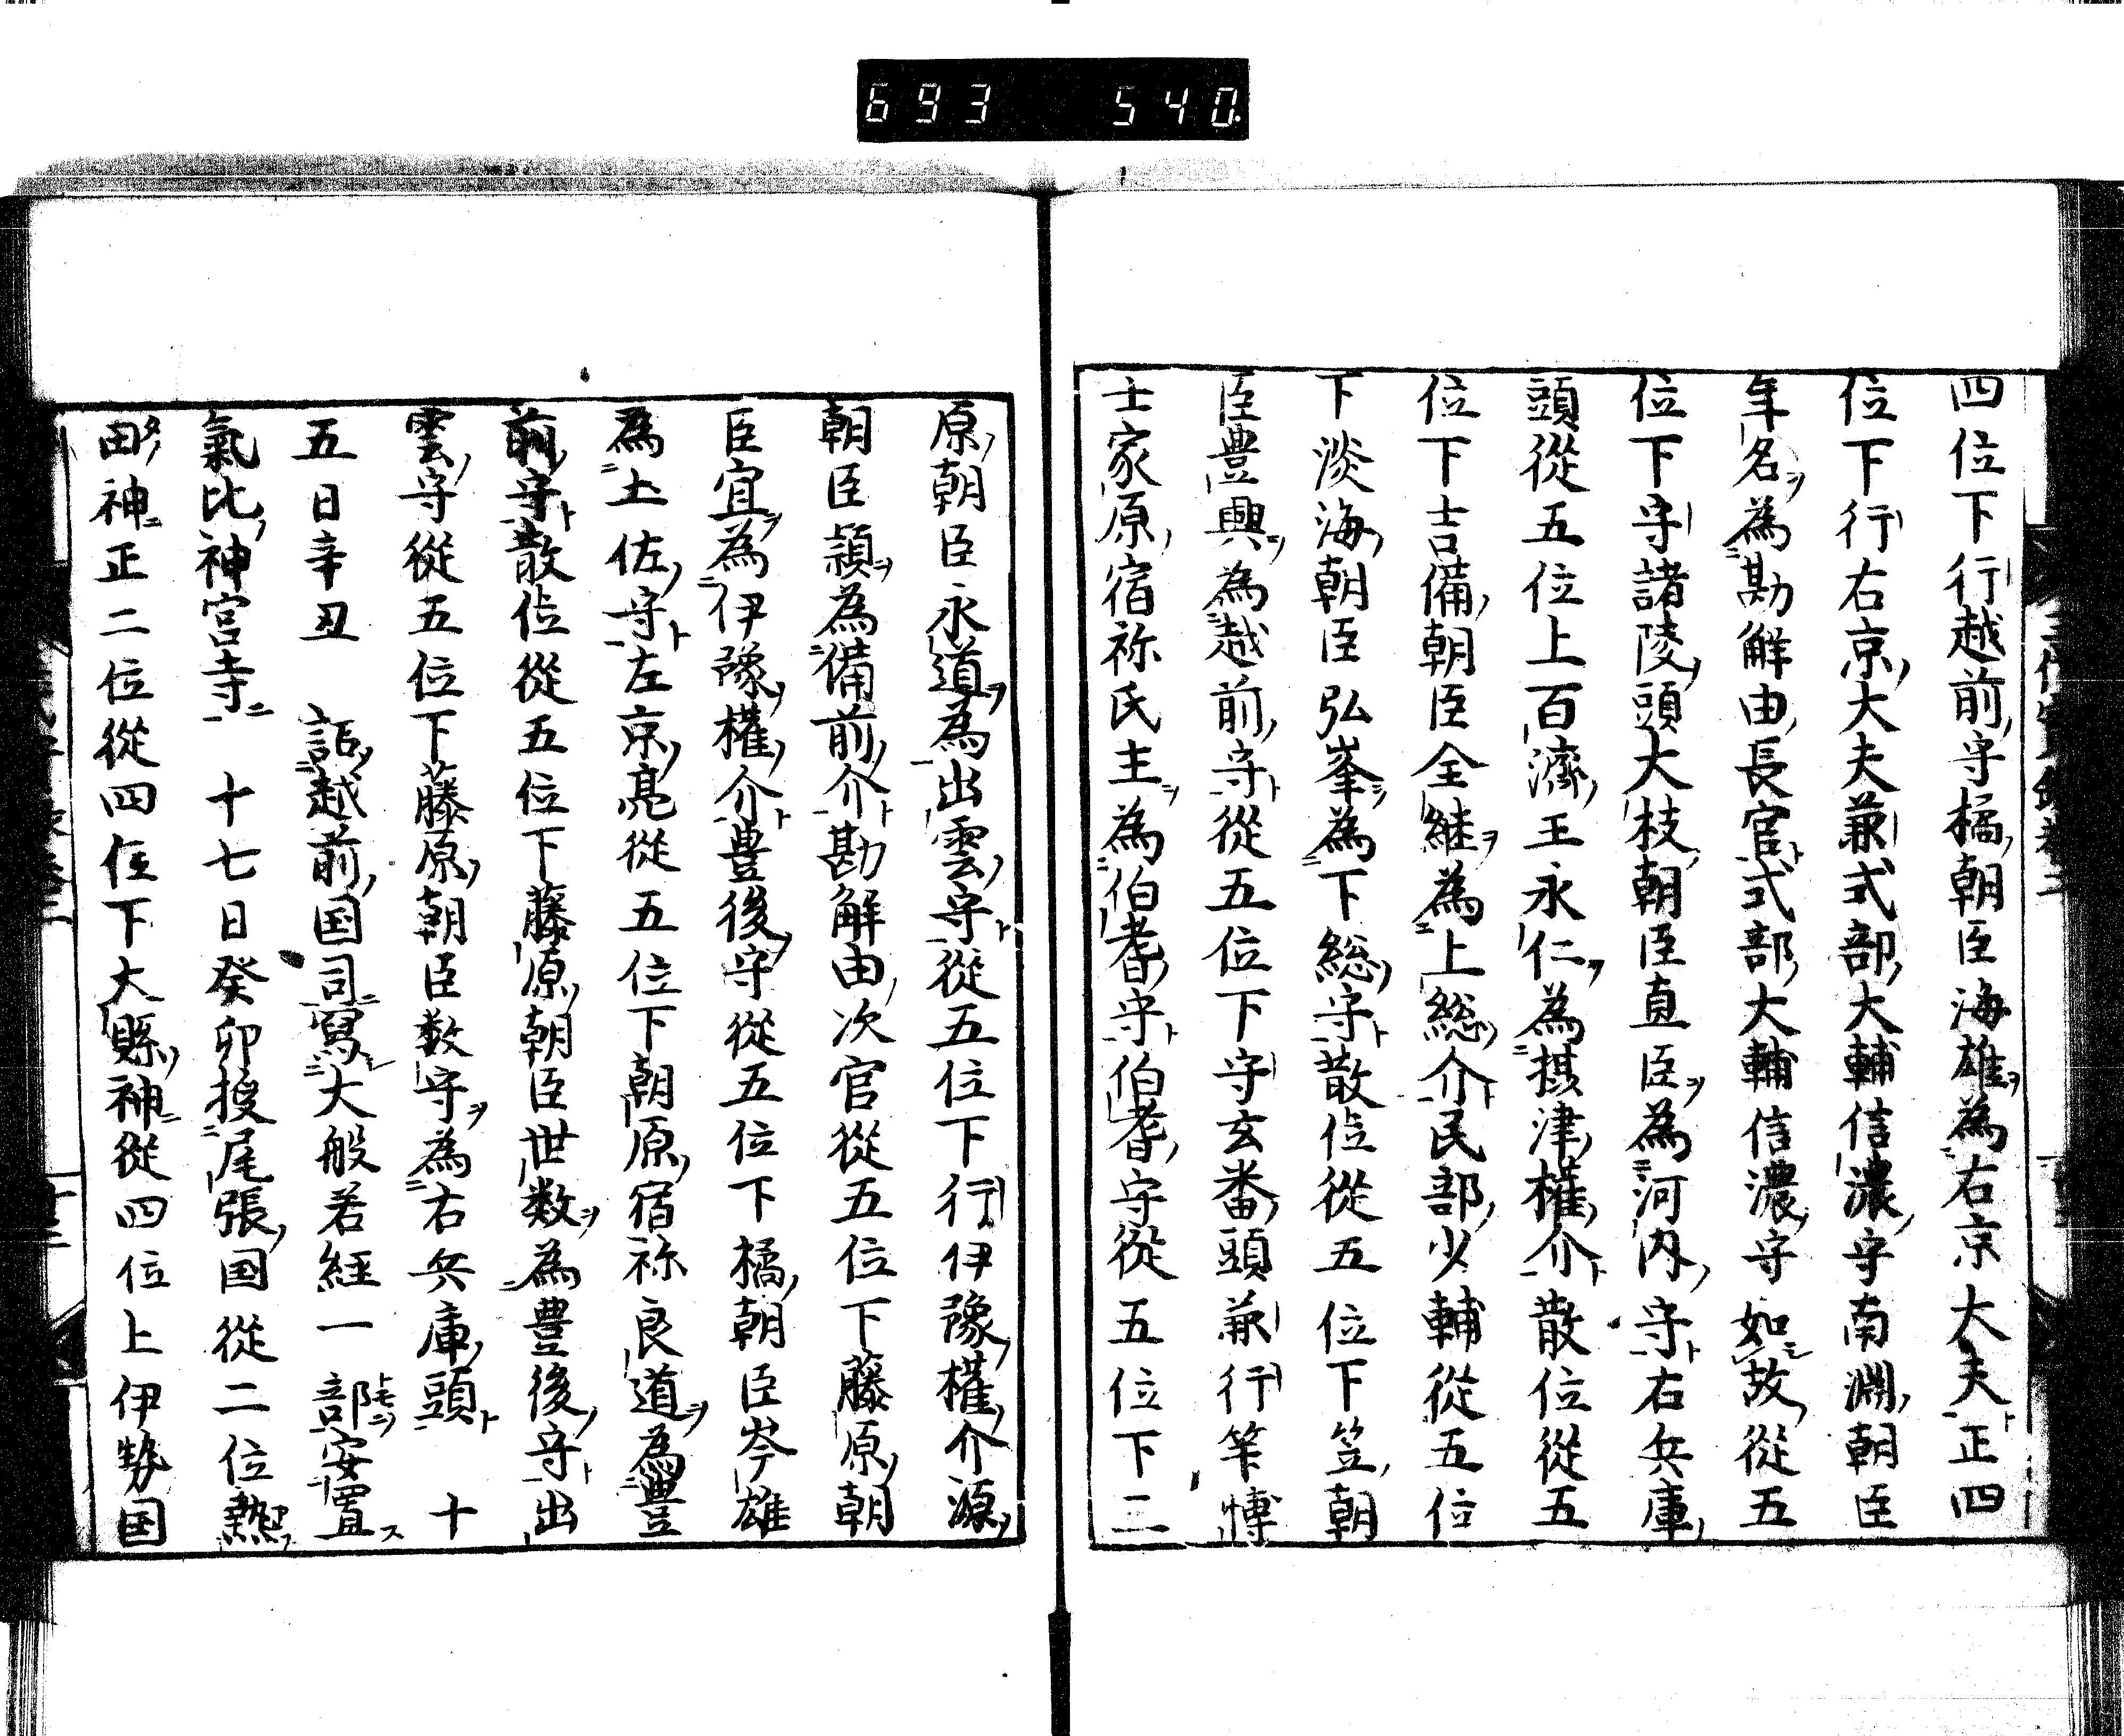 693 540
四位下行越前守橘朝臣海雄為右京大夫正四
位下行右京大夫兼式部大輔信濃守南淵朝臣
年名為勘解由長官式部大輔信濃守如故從五
位下守諸陵頭大枝朝臣直臣為河内守右兵庫
頭從五位上百濟王永仁為摂津權介散位從五
位下吉備朝臣全継為上総介民部少輔從五位
下淡海朝臣弘峯為下総守散位從五位下笠朝
臣豊興為越前守從五位下守玄番頭兼行笇愽
士家原宿祢氏主為伯耆守伯耆守從五位下二
原朝臣永道為出雲守從五位下行伊豫權介源
朝臣頴為備前介勘解由次官從五位下藤原朝
臣宜為伊豫權介豊後守從五位下橘朝臣岑雄
為土佐守左京亮從五位下朝原宿祢良道為豊
前守散位從五位下藤原朝臣世数為豊後守出
雲守從五位下藤原朝臣数守為右兵庫頭 十
五日辛丑 詔越前国司寫大般若経一部安置
氣比神宮寺 十七日癸卯授尾張国從二位熱
田神正二位從四位下大縣神從四位上伊勢国